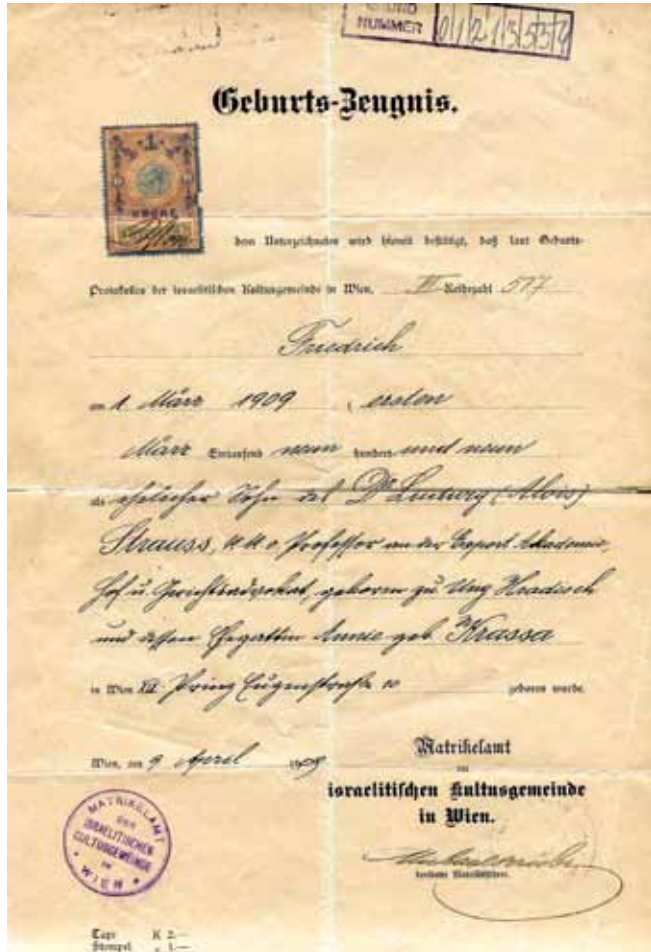 GRUND
NUMMER 01213554
Geburts-Zeugnis.
1
KRONE
Von Unterzeichneten wird hiemit bestätigt, daß laut Geburts-
Protokolles der israelitischen Kultusgemeinde in Wien, Reihezahl 517
Friedrich
am 1 März 1909, ersten
März Eintausend neun hundert und neun
als ehelicher Sohn des Dr Ludwig (Alois)
Strauss, Professor an der Export Akademie,
Hof u. Gerichtsadvokat, geboren zu Ung Hradisch
und dessen Ehegattin Annie geb Krassa
in Wien Prinz Eugenstraße 10 geboren wurde.
Wien, am 9 April 1909
Matrikelamt
der
israelitischen Kultusgemeinde
in Wien.
MATRIKELAMT
DER
ISRAELITISCHEN
CULTUSGEMEINDE
IN
WIEN
Taxe K 2.—
Stempel „ 1.—